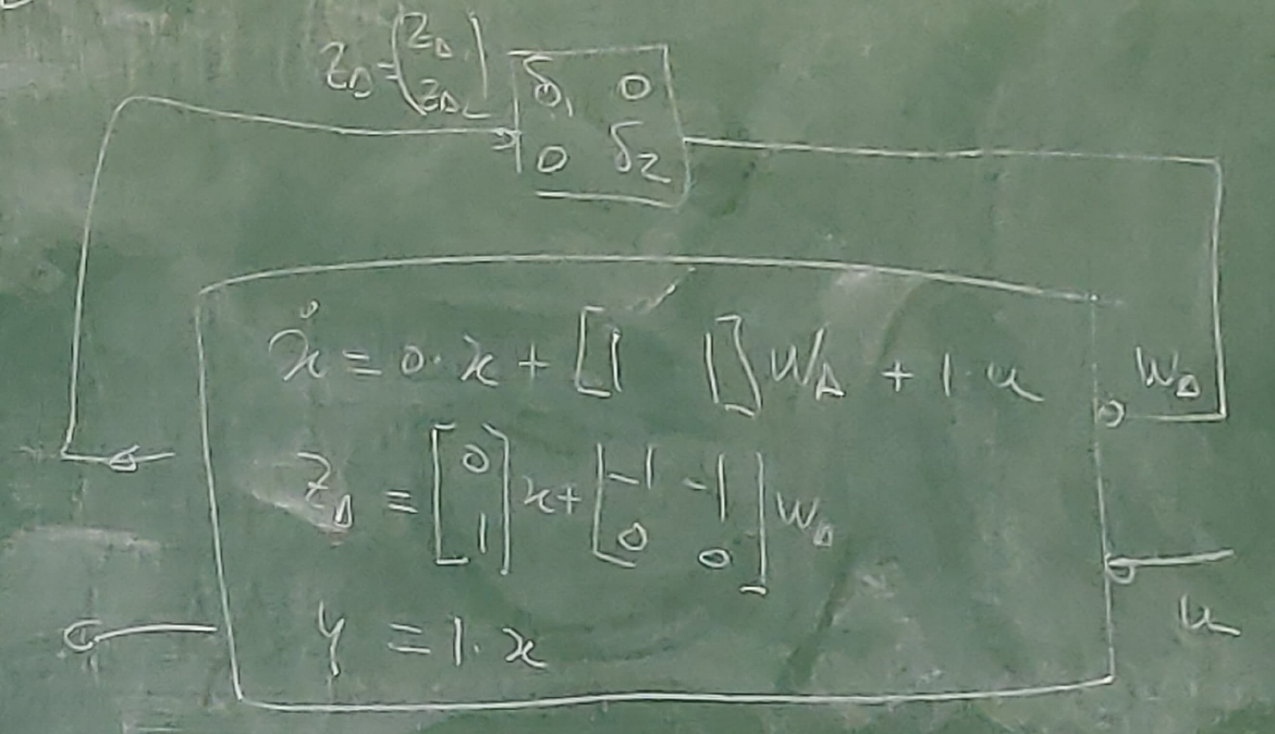 z_Δ = (z_Δ z_Δ2)
δ₁ 0
0 δ₂
ẋ = 0·x + [1 1] w_Δ + 1·u
w_Δ
z_Δ = [0 1] x + [-1 -1 0 0] w_Δ
u
y = 1·x